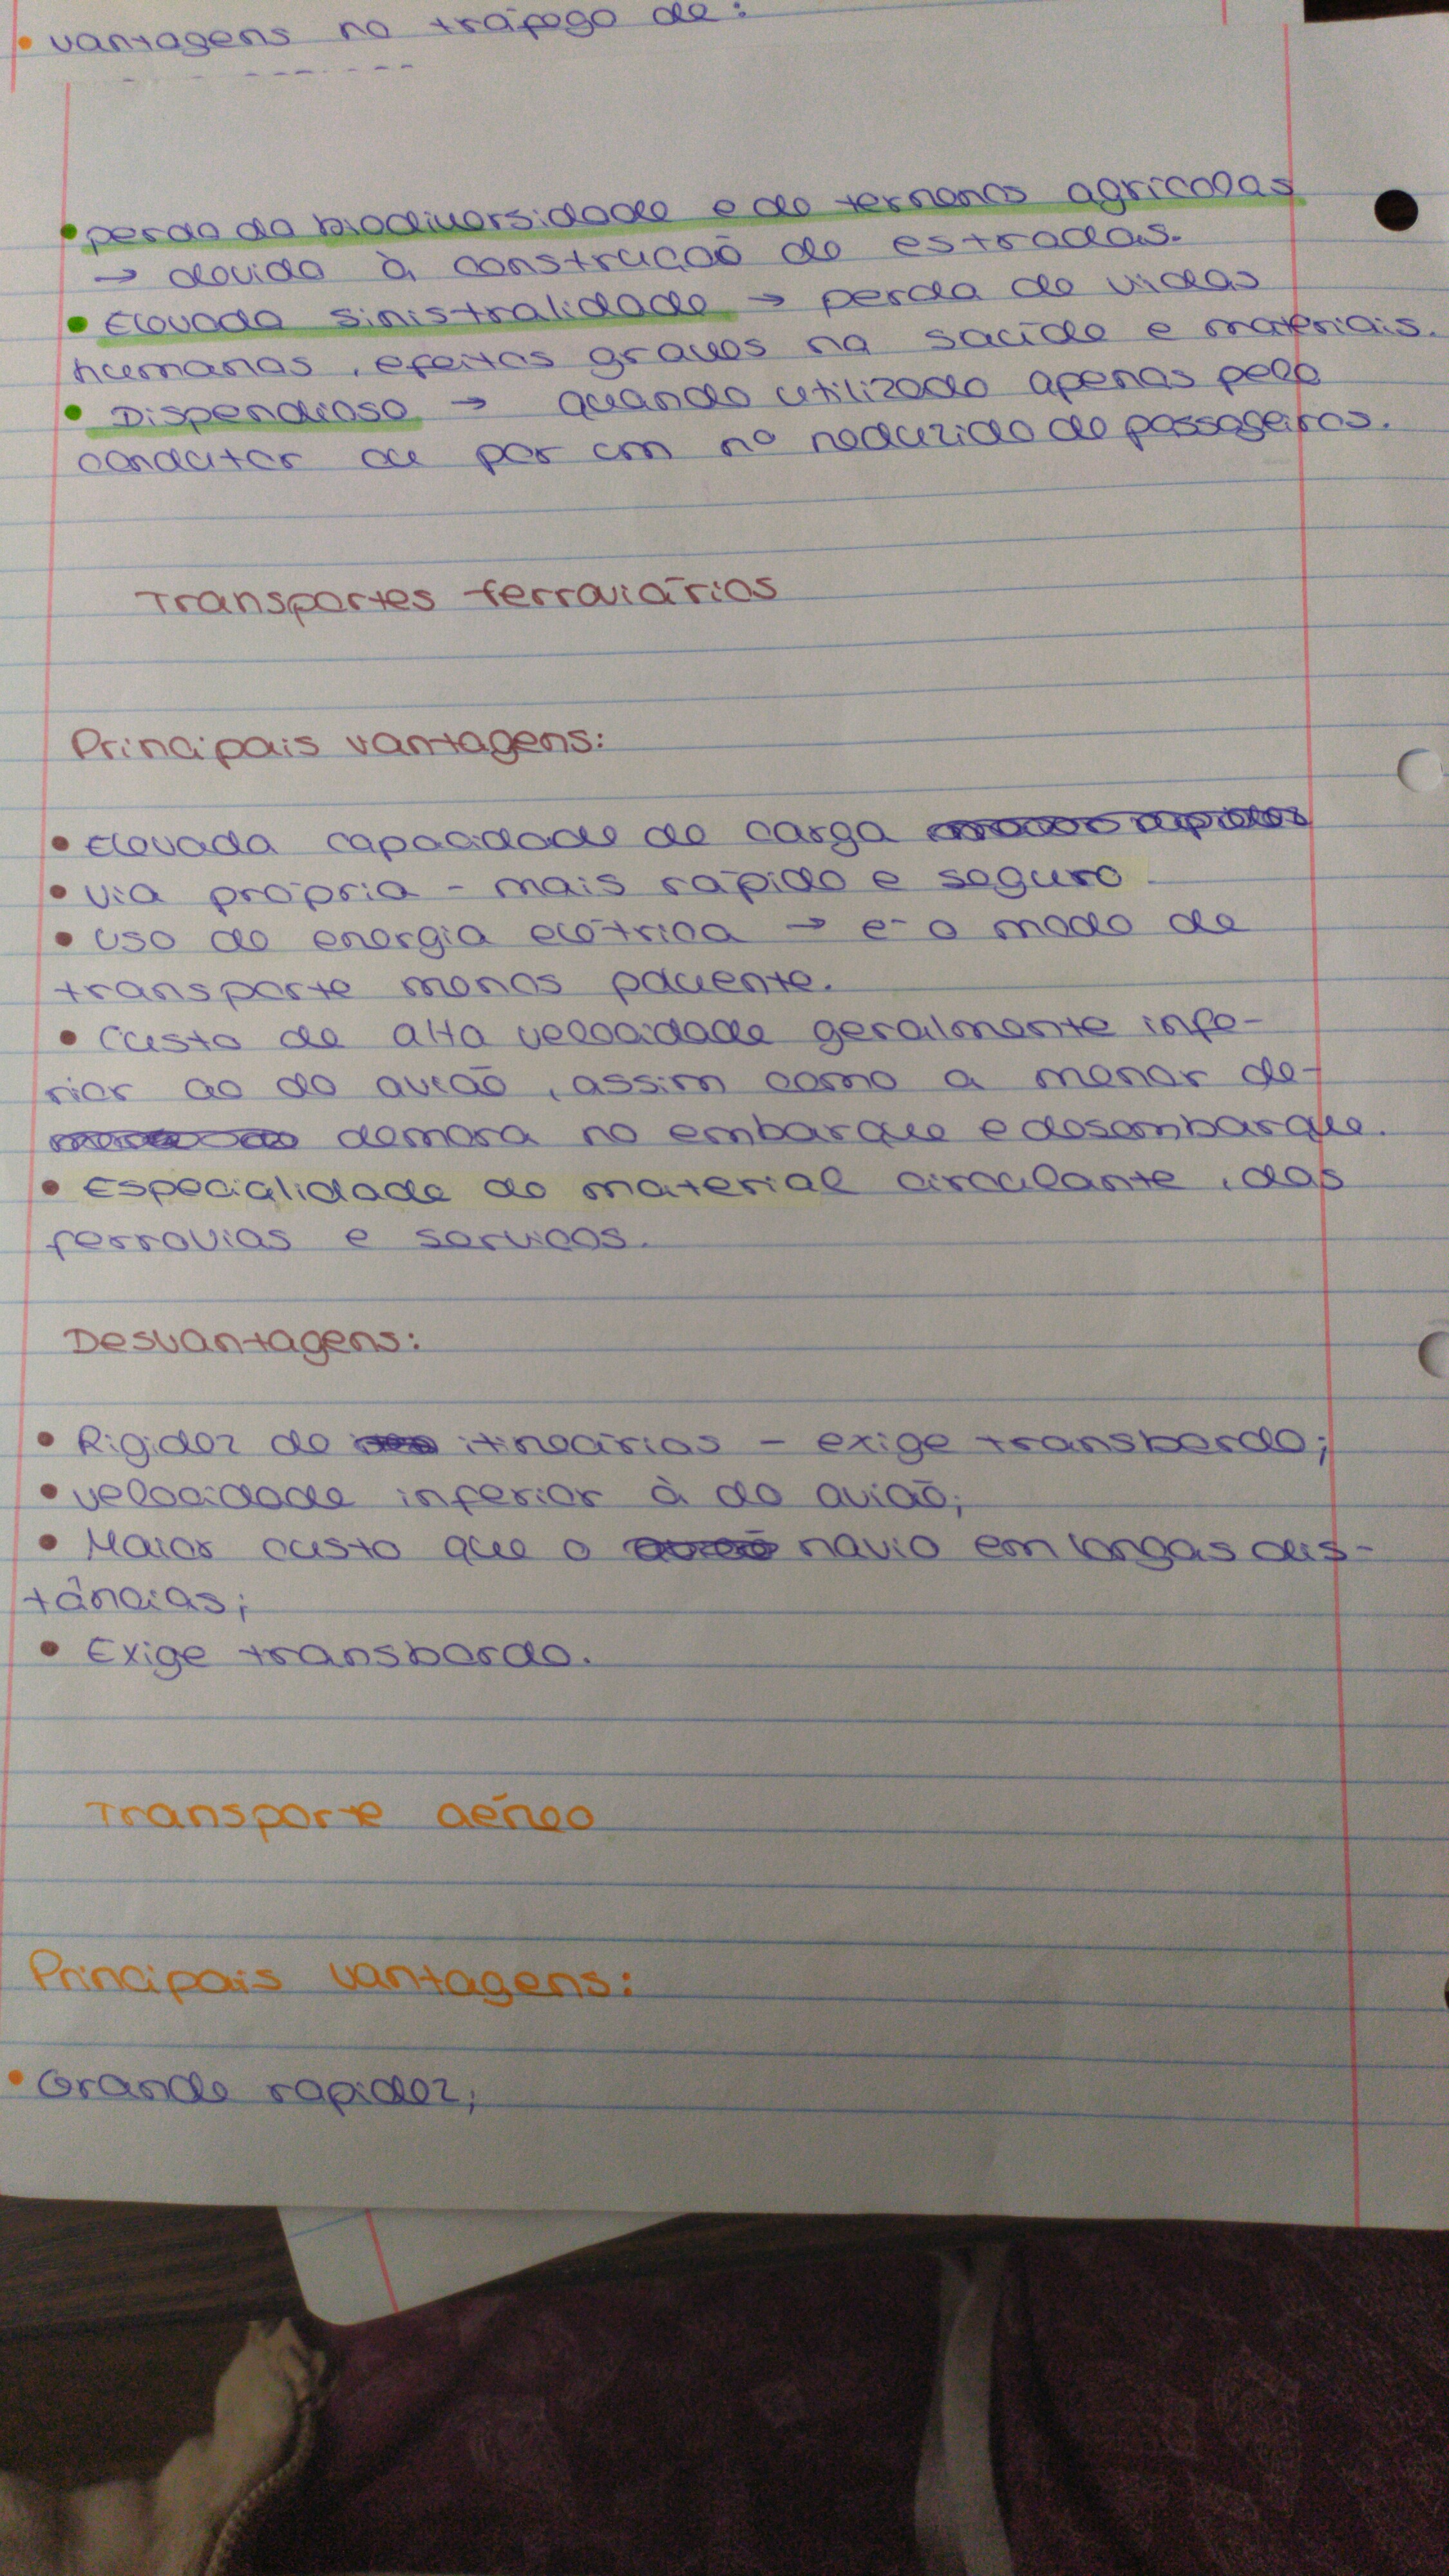 • vantagens no tráfego de:
• perda da biodiversidade e de terrenos agrícolas
→ devido à construcaõ de estradas.
• Elevada sinistralidade → perda de vidas
humanas, efeitos graves na saúde e materiais.
• Dispendioso → quando utilizado apenas pelo
condutor ou por um nº reduzido de passageiros.
Transportes ferroviários
Principais vantagens:
• Elevada capacidade de carga
• via própria - mais rápido e seguro.
• uso de energia elétrica → é o modo de
transporte menos poluente.
• Custo de alta velocidade geralmente infe-
rior ao do aviaõ, assim como a menor de-
demora no embarque e desembarque.
• Especialidade do material circulante, das
ferrovias e servicos.
Desvantagens:
• Rigidez de itineários - exige transbordo;
• velocidade inferior à do aviaõ;
• Maior custo que o navio em longas dis-
tâncias;
• Exige transbordo.
Transporte aéreo
Principais vantagens:
• Grande rapidez;